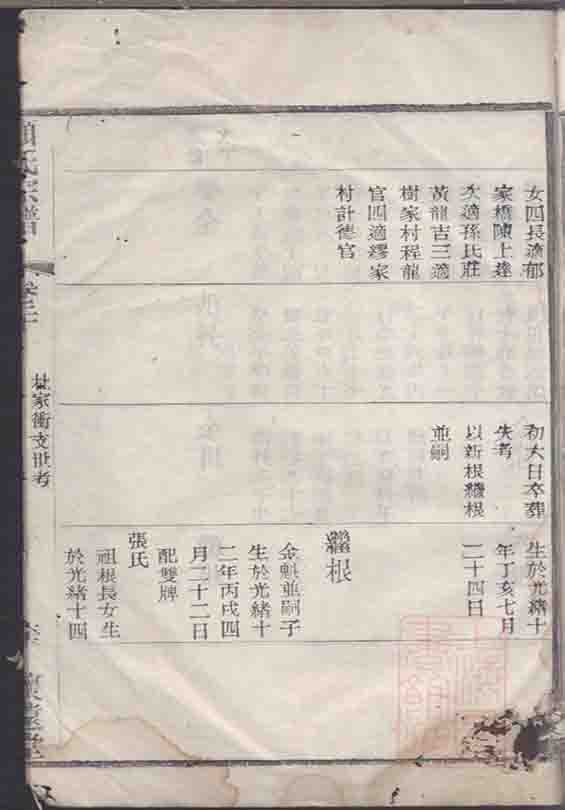 女四長適郁
家橋陳上達
次適孫氏莊
黃龍吉三適
樹家村程龍
官四適繆家
村計德官
初六日卒葬
失考
以新根繼根
並嗣
生於光緒十
年丁亥七月
二十四日
繼根
金魁並嗣子
生於光緒十
二年丙戌四
月二十二日
配雙牌
張氏
祖根長女生
於光緒十四
氏宗譜
卷
杜家衖支世考